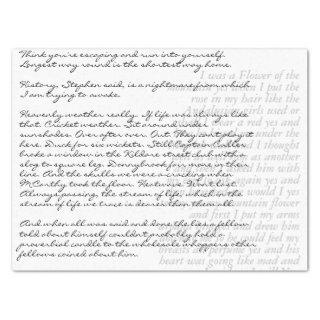 Think you're escaping and run into yourself.
Longest way round is the shortest way home.
History, Stephen said, is a nightmare from which
I am trying to awake.
Heavenly weather really. If life was always like
that. Cricket weather. Sit around under
sunshades. Over after over. Out. They can't play it
here. Duck for six wickets. Still Captain Culler
broke a window in the Kildare street club with a
slog to square leg. Donnybrook fair more in their
line. And the skulls we were acracking when
M'Carthy took the floor. Heatwave. Won't last.
Always passing, the stream of life, which in the
stream of life we trace is dearer than them all.
And when all was said and done the lies a fellow
told about himself couldn't probably hold a
proverbial candle to the wholesale whoppers other
fellows coined about him.
I was a Flower of the
yes when I put the
rose in my hair like the
Andalusian girls used or
a red yes
me under the
I thought
as another
asked him
yes
would I yes
mountain flower
and first I put my arms
drew him down
he could feel my
breasts all perfume yes and his
heart was going like mad and